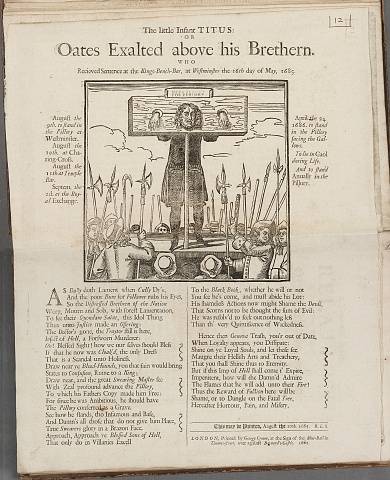 12
The little Infant TITUS:
OR
Oates Exalted above his Brethern.
WHO
Recieved Sentence at the Kings-Bench-Bar, at Westminster the 16th day of May, 1685.
August the
9th. to stand in
the Pillory at
Westminster.
August the
10th. at Cha-
ring-Cross.
August the
11th at Temple
Bar.
Septem. the
2d. at the Roy-
al Exchange.
April the 24
1686. to stand
in the Pillory
facing the Gal-
lows.
To lie in Gaol
during Life,
And to stand
Annually in the
Pillory.
AS Bully doth Lament when Cully Dy's,
And the poor Bum for Fallours rubs his Eyes,
So the Distressed Brethren of the Nation
Weep, Mourn and Sob, with forc'd Lamentation,
To see their Stupendous Saint, this Idol Thing
Thus unto Justice made an Offering:
The Bastor's gone, the Traytor still is here,
Imp of Hell, a Forsworn Murderer:
Oh! Blessed Sight! how we our selves should Bless
If that he now was Choak'd, the only Dress
That is a Scandal unto Holiness.
Draw near ye Blood-Hounds, you that fain would bring
States to Confusion, Ruine to a King;
Draw near, and the great Swearing Master see
With Zeal profound advance the Pillory,
To which his Fathers Copy made him free:
For since he was Ambitious, he should have
The Pillory conferred as a Grave.
See how he stands, the Infamous and Base,
And Damns all those that do not give him Place,
True Swearers glory in a Brazen Face.
Approach, Approach ye Blessed Sons of Hell,
That only do in Villanies Excell
To the Black Book, whether he will or not
You see he's come, and must abide his Lot:
His shameless Actions now might Shame the Devil,
That Scorns not to be thought the sum of Evil:
He was resolv'd to seek out nothing less
Than th' very Quintissence of Wickedness.
Hence then Gromne Truth, you'r out of Date,
When Loyalty appears, you Dissipate:
Shine on ye Loyal Souls, and let these see
Maugre their Hellish Arts and Treachery,
That you shall Shine thus to Eternity.
But if this Imp of Hell shall come t' Expire,
Impenitent, how will the Damn'd Admire
The Flames that he will add unto their Fire!
Thus the Reward of Falsion here will be
Shame, or to Dangle on the Fatal Tree,
Hereafter Horrour, Pain, and Misery.
This may be Printed, August the 10th. 1685. R. L. S.
LONDON, Printed by George Croom, at the Sign of the Blue-Ball in
Thames-street, over against Baynard's-Castle. 1685.